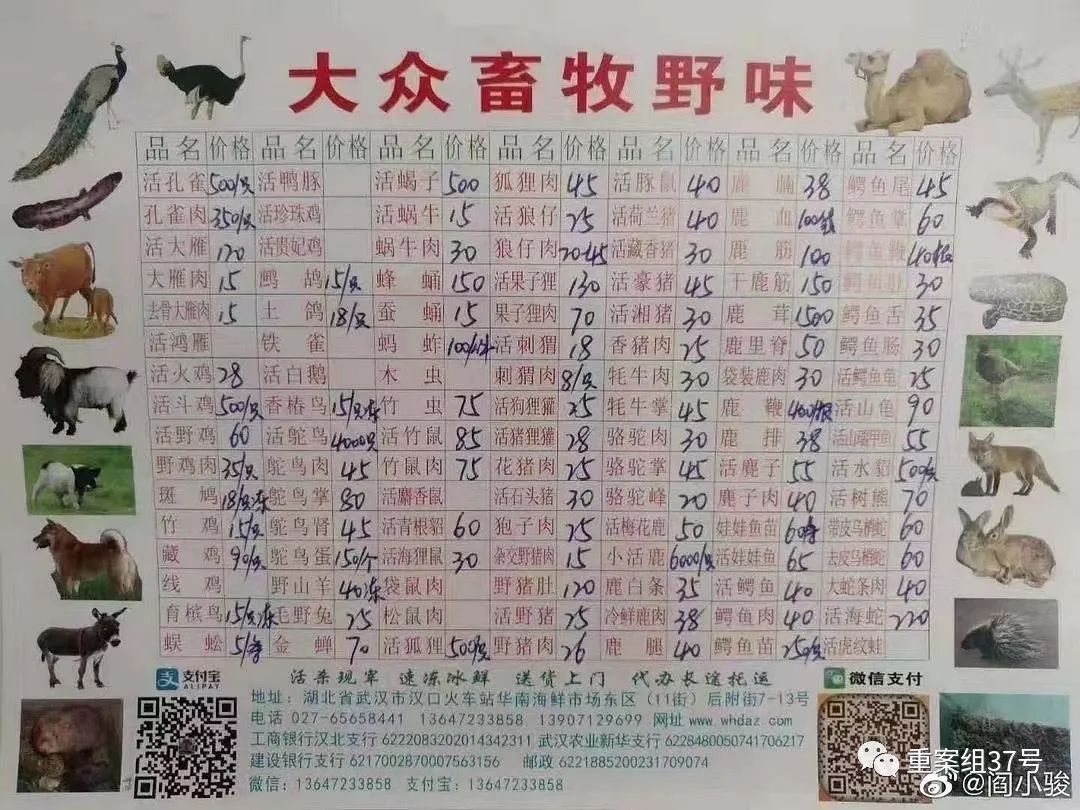 大众畜牧野味
品名 价格 品名 价格 品名 价格 品名 价格 品名 价格 品名 价格 品名 价格
活孔雀 500/只 活鸭豚 活蝎子 500 狐狸肉 45 活豚鼠 40 鹿腩 38 鳄鱼尾 45
孔雀肉 350/只 活珍珠鸡 活蜗牛 15 活狼仔 25 活荷兰猪 40 鹿血 鳄鱼掌 60
活大雁 120 活贵妃鸡 蜗牛肉 30 狼仔肉 活藏香猪 30 鹿筋 100 鳄鱼鞭
大雁肉 15 鹧鸪 15/只 蜂蛹 150 活果子狸 130 活豪猪 45 干鹿筋 150 鳄鱼肚 30
去骨大雁肉 15 土鸽 18/只 蚕蛹 15 果子狸肉 70 活湘猪 30 鹿茸 1500 鳄鱼舌 35
活鸿雁 铁雀 蚂蚱 活刺猬 18 香猪肉 25 鹿里脊 50 鳄鱼肠 30
活火鸡 28 活白鹅 木虫 刺猬肉 8/只 牦牛肉 30 袋装鹿肉 30 活鳄鱼龟 25
活斗鸡 500/只 香椿鸟 15/只冻 竹虫 75 活狗狸獾 25 牦牛掌 45 鹿鞭 活山龟 90
活野鸡 60 活鸵鸟 4000只 活竹鼠 85 活猪狸獾 28 骆驼肉 30 鹿排 38 活山瑞甲鱼 55
野鸡肉 35/只 鸵鸟肉 45 竹鼠肉 75 花猪肉 25 骆驼掌 45 活麂子 55 活水貂 500/只
斑鸠 18/只冻 鸵鸟掌 80 活麝香鼠 活石头猪 30 骆驼峰 20 麂子肉 40 活树熊 70
竹鸡 15/只 鸵鸟肾 45 活青根貂 60 狍子肉 25 活梅花鹿 50 娃娃鱼苗 带皮乌梢蛇 60
藏鸡 90/只 鸵鸟蛋 150/个 活海狸鼠 30 杂交野猪肉 15 小活鹿 6000/只 活娃娃鱼 65 去皮乌梢蛇 60
线鸡 野山羊 40冻 袋鼠肉 野猪肚 120 鹿白条 35 活鳄鱼 40 大蛇条肉 40
育槟鸟 15/只冻 毛野兔 25 松鼠肉 活野猪 25 冷鲜鹿肉 38 鳄鱼肉 40 活海蛇 220
蜈蚣 金蝉 70 活狐狸 500/只 野猪肉 26 鹿腿 40 鳄鱼苗 250/只 活虎纹蛙
支付宝 ALIPAY 活杀现宰 速冻冰鲜 送货上门 代办长途托运 微信支付
地址：湖北省武汉市汉口火车站华南海鲜市场东区（11街）后附街7-13号
电话 027-65658441 13647233858 13907129699 网址 www.whdaz.com
工商银行汉北支行 6222083202014342311 武汉农业新华支行 6228480050741706217
建设银行支行 6217002870007563156 邮政 6221885200231709074
微信：13647233858 支付宝：13647233858
重案组37号
@阎小骏